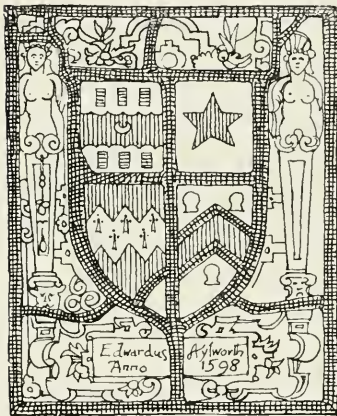 Edwardus Aylworth
Anno 1598